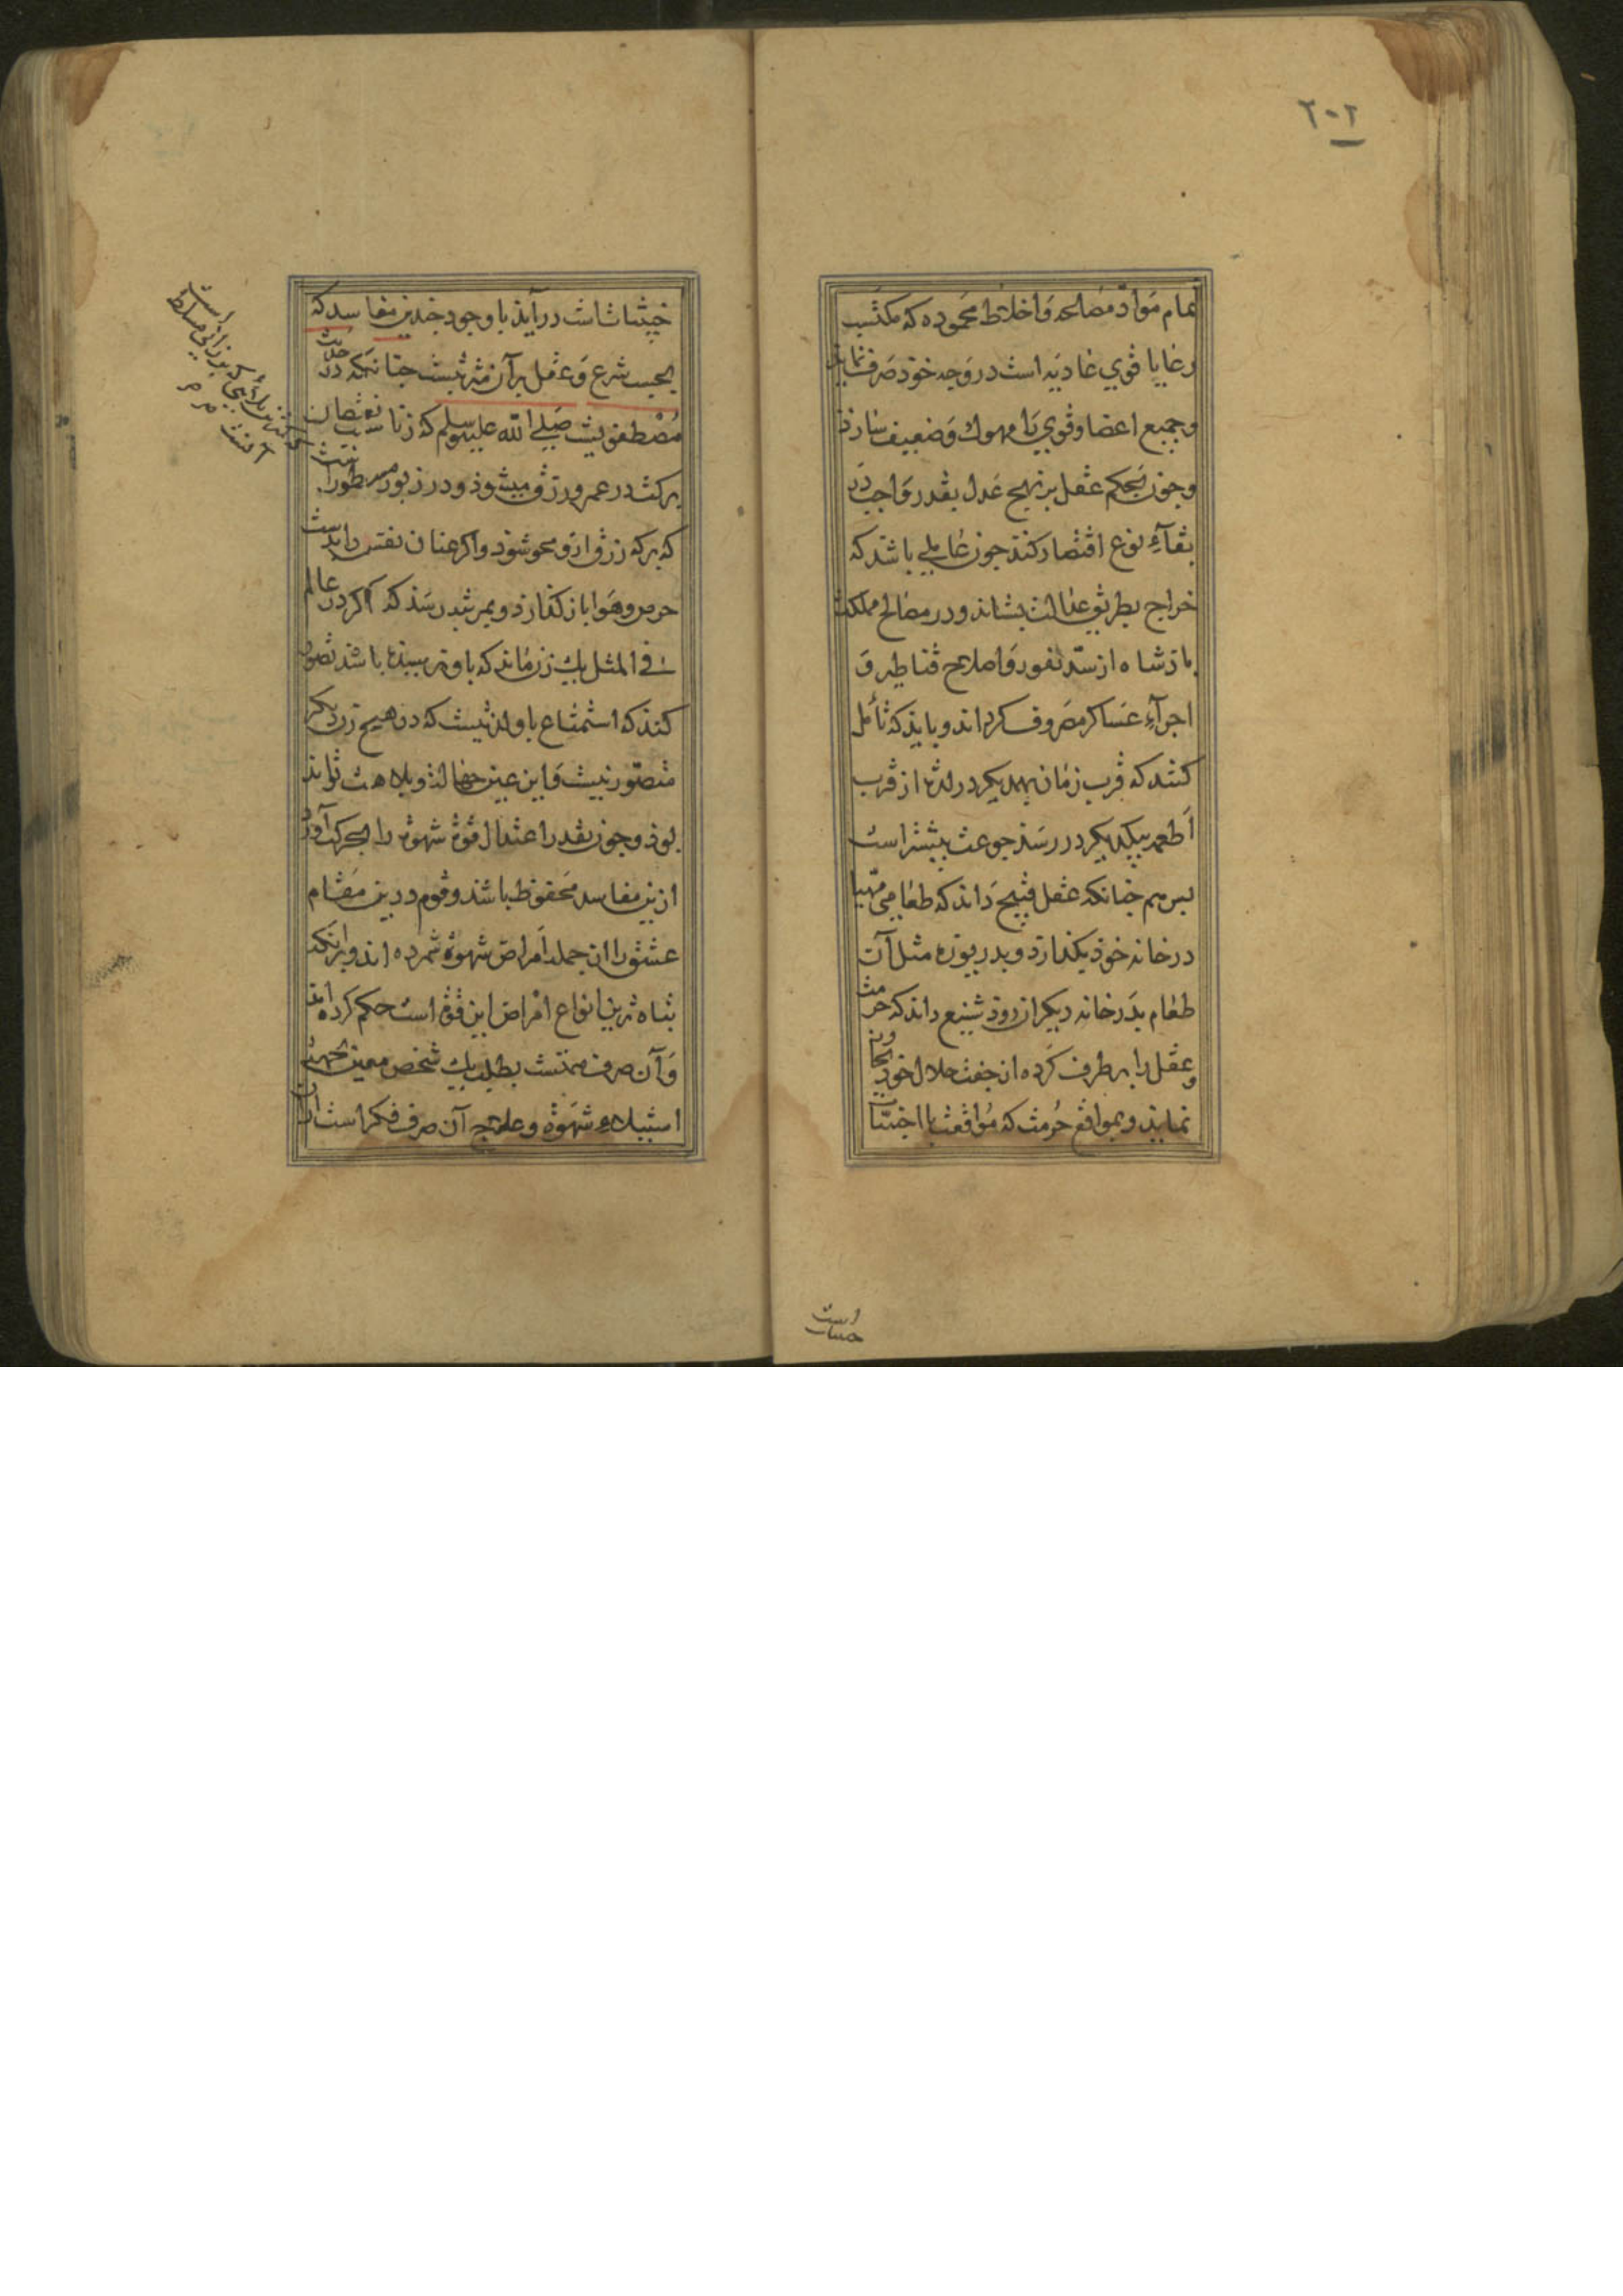 ٢٠٢
تمام مواد صالحه و اخلاط محموده که مکتسب
رعایا قوی غادیه است در وجه خود صرف نماید
و جمیع اعضا و قوی را مهوك و ضعیف سازد
و چون بحکم عقل بر نهج عدل بقدر واجب در
بقآء نوع اقتصار کند چون عاملی باشد که
خراج بطریق عدالت بستاند و در مصالح مملکت
بادشاه از سد ثغور و اصلاح قناطیر و
اجرآء عساکر مصروف کرداند و باید که تأمل
کنند که قرب زنان بهمدیکر در لذت از قرب
اطعمه بیکدیکر در رسد جوعت بیشتر است
بس هم چنانکه عقل قبیح داند که طعامی مهیا
در خانه خود بکذارد و بدریوزه مثل آن
طعام بدر خانه دیکران رود شنیع داند که حرمت
و عقل را بر طرف کرده از جفت حلال خود تجاوز
نماید و بمواقع حرمت که مواقعت با اجنبیات
است
خبیثات است در آید با وجود چندین مفاسد که
بحسب شرع و عقل بر آن مترتبست چنانکه در حدیث
مصطفویست صلی الله علیه وسلم که زنا سبب نقصان
برکت در عمر و رزق میشود و در زبور مسطورست
که برکه رزق ازو محو شود و اکر عنان نفس را بدست
حرص و هوا باز کذارد و بمرتبه رسد که اکر در عالم
فی المثل یك زن ماند که باو نرسیده باشد تصور
کند که استمتاع باو لذتیست که در هیچ زن دیکر
متصور نیست و این عین جهالت و بلاهت تواند
بود و چون بقدر اعتدال قوة شهوة را بحرکت آورد
ازین مفاسد محفوظ باشد و قوم درین مقام
عشق را از جمله امراض شهوة شمرده اند و بر آنکه
تباه ترین انواع امراض این قوة است حکم کرده اند
و آن صرف همتست بطلب یك شخص معین بجهت
استیلاء شهوة و علاج آن صرف فکر است از آن